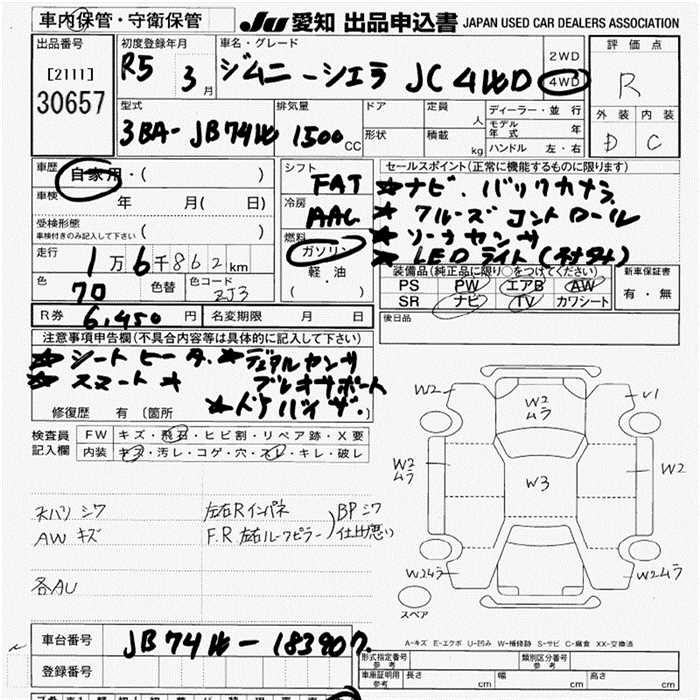 車内保管・守衛保管 JU 愛知 出品申込書 JAPAN USED CAR DEALERS ASSOCIATION
出品番号 [2111] 30657
初度登録年月 R5 3月
車名・グレード ジムニーシエラ JC 4WD
2WD
4WD
評価点 R
外装 内装
D C
型式 3BA-JB74W
排気量 1500 CC
ドア
形状
定員 人
積載 kg
ディーラー・並行
モデル年式 年
ハンドル 左・右
車歴 自家用・( )
車検 年 月( 日)
受検形態 ( )
車検付きのみ記入して下さい
走行 1万6千862km
色 70 色替 色コード ZJ3
シフト FAT
冷房 AAC
燃料 ガソリン
軽油
( )
セールスポイント(正常に機能するものに限ります)
★ナビ、バックカメラ
★クルーズコントロール
★ソーナセンサ
★LEDライト
装備品(純正品に限り○をつけてください)
PS PW エアB AW
SR ナビ TV カワシート
新車保証書
有・無
R券 6,450円 名変期限 月 日
後日品
注意事項申告欄(不具合内容等は具体的に記入して下さい)
★シートヒータ、★デュアルセンサ
★スマートキ ブレキサポート
★ドアバイザ、
修復歴 有 (箇所 )
検査員記入欄
FW キズ・飛石・ヒビ割・リペア跡・X要
内装 キズ・汚レ・コゲ・穴・スレ・キレ・破レ
天ハリ シワ
AW キズ
各AU
左右Rインパネ
F.R 左右ルーフピラー
BPシワ
仕上悪い
W2
W2ムラ
V1
W2ムラ
W3
W2
W24ラ
W2ムラ
スペア
A-キズ E-エクボ U-凹み W-補修跡 S-サビ C-腐食 XX-交換済
車台番号 JB74W-183907
登録番号
形式指定番号 参考
類別区分番号 参考
車庫証明用 参考
長さ cm 幅 cm 高さ cm